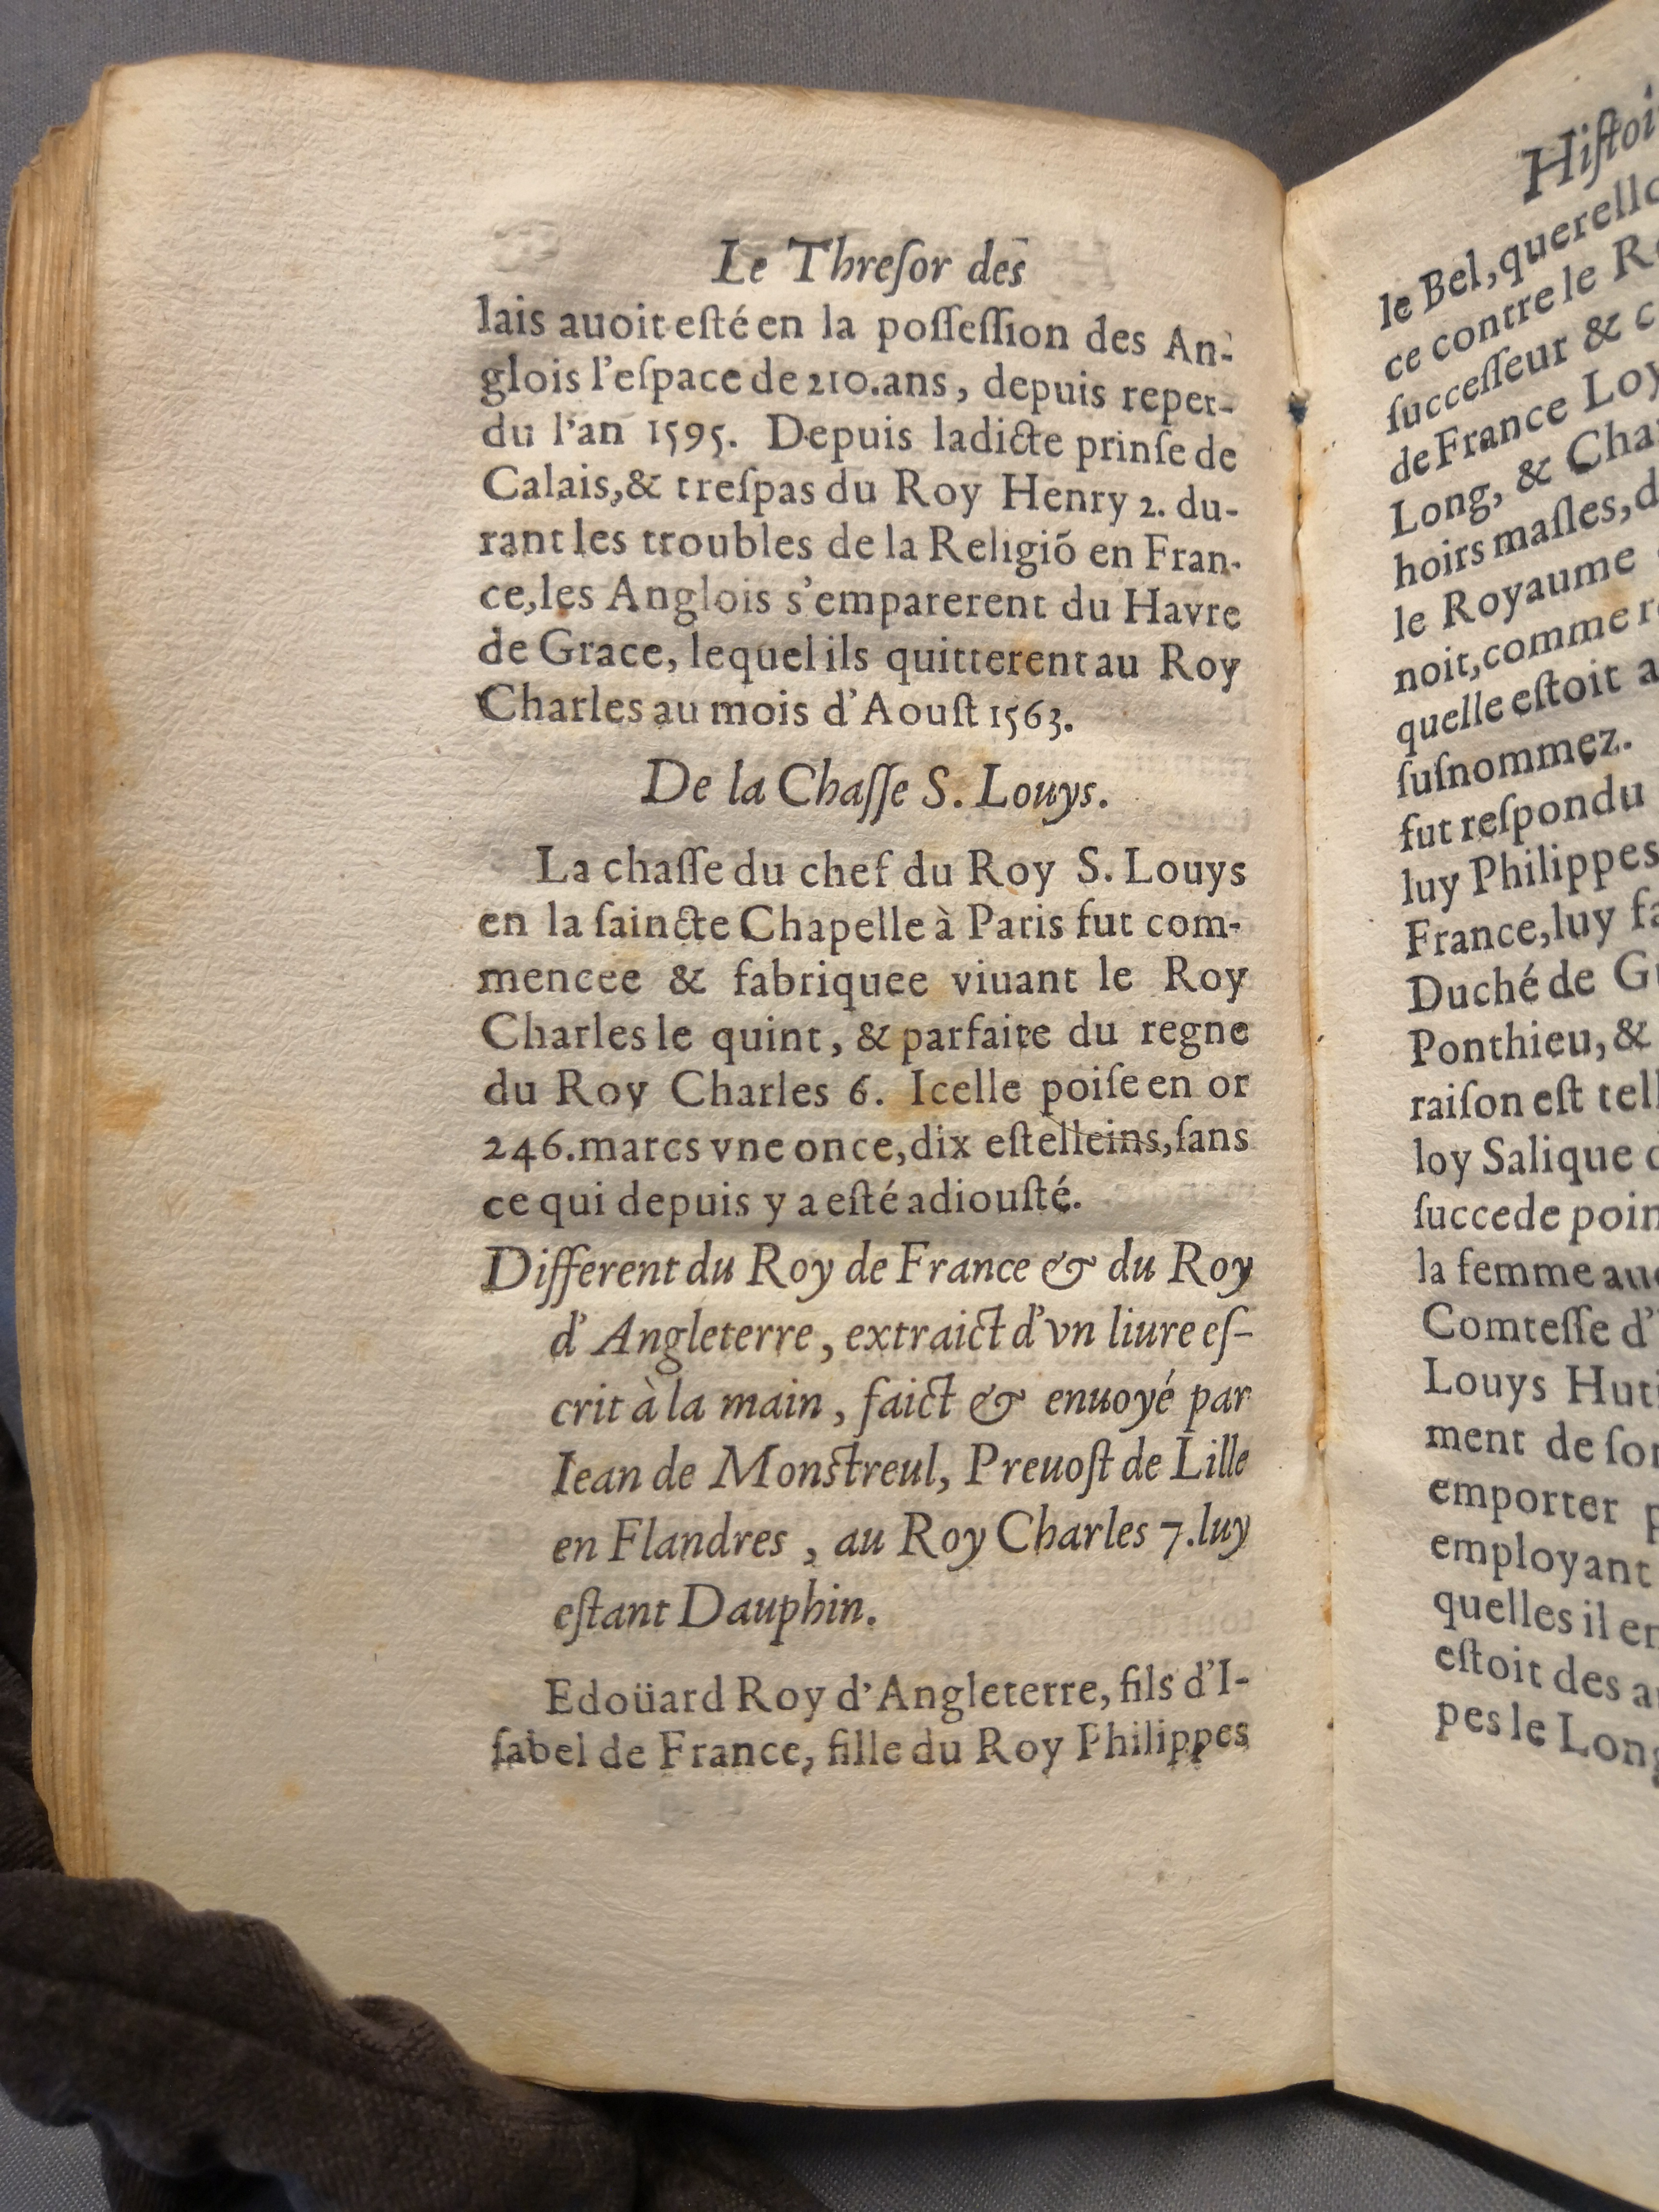 Le Threſor des
lais auoit eſté en la poſſeſſion des An-
glois l'eſpace de 210.ans, depuis reper-
du l'an 1595. Depuis ladicte prinſe de
Calais,& treſpas du Roy Henry 2. du-
rant les troubles de la Religiõ en Fran-
ce,les Anglois s'emparerent du Havre
de Grace, lequel ils quitterent au Roy
Charles au mois d'Aouſt 1563.
De la Chaſſe S. Louys.
La chaſſe du chef du Roy S. Louys
en la ſaincte Chapelle à Paris fut com-
mencee & fabriquee viuant le Roy
Charles le quint, & parfaite du regne
du Roy Charles 6. Icelle poiſe en or
246.marcs vne once,dix eſtelleins,ſans
ce qui depuis y a eſté adiouſté.
Different du Roy de France & du Roy
d'Angleterre, extraict d'vn liure eſ-
crit à la main, faict & enuoyé par
Iean de Monstreul, Preuoſt de Lille
en Flandres, au Roy Charles 7.luy
eſtant Dauphin.
Edoüard Roy d'Angleterre, fils d'I-
ſabel de France, fille du Roy Philippes
le Bel,
ce contre le
ſucceſſeur &
de France
Long, &
hoirs maſles,
le Royaume
noit,comme
quelle eſtoit
ſuſnommez.
fut reſpondu
luy Philippes
France,luy
Duché de
Ponthieu, &
raiſon eſt
loy Salique
ſuccede
la femme
Comteſſe
Louys
ment de
emporter
employant
quelles il
eſtoit des
pes le